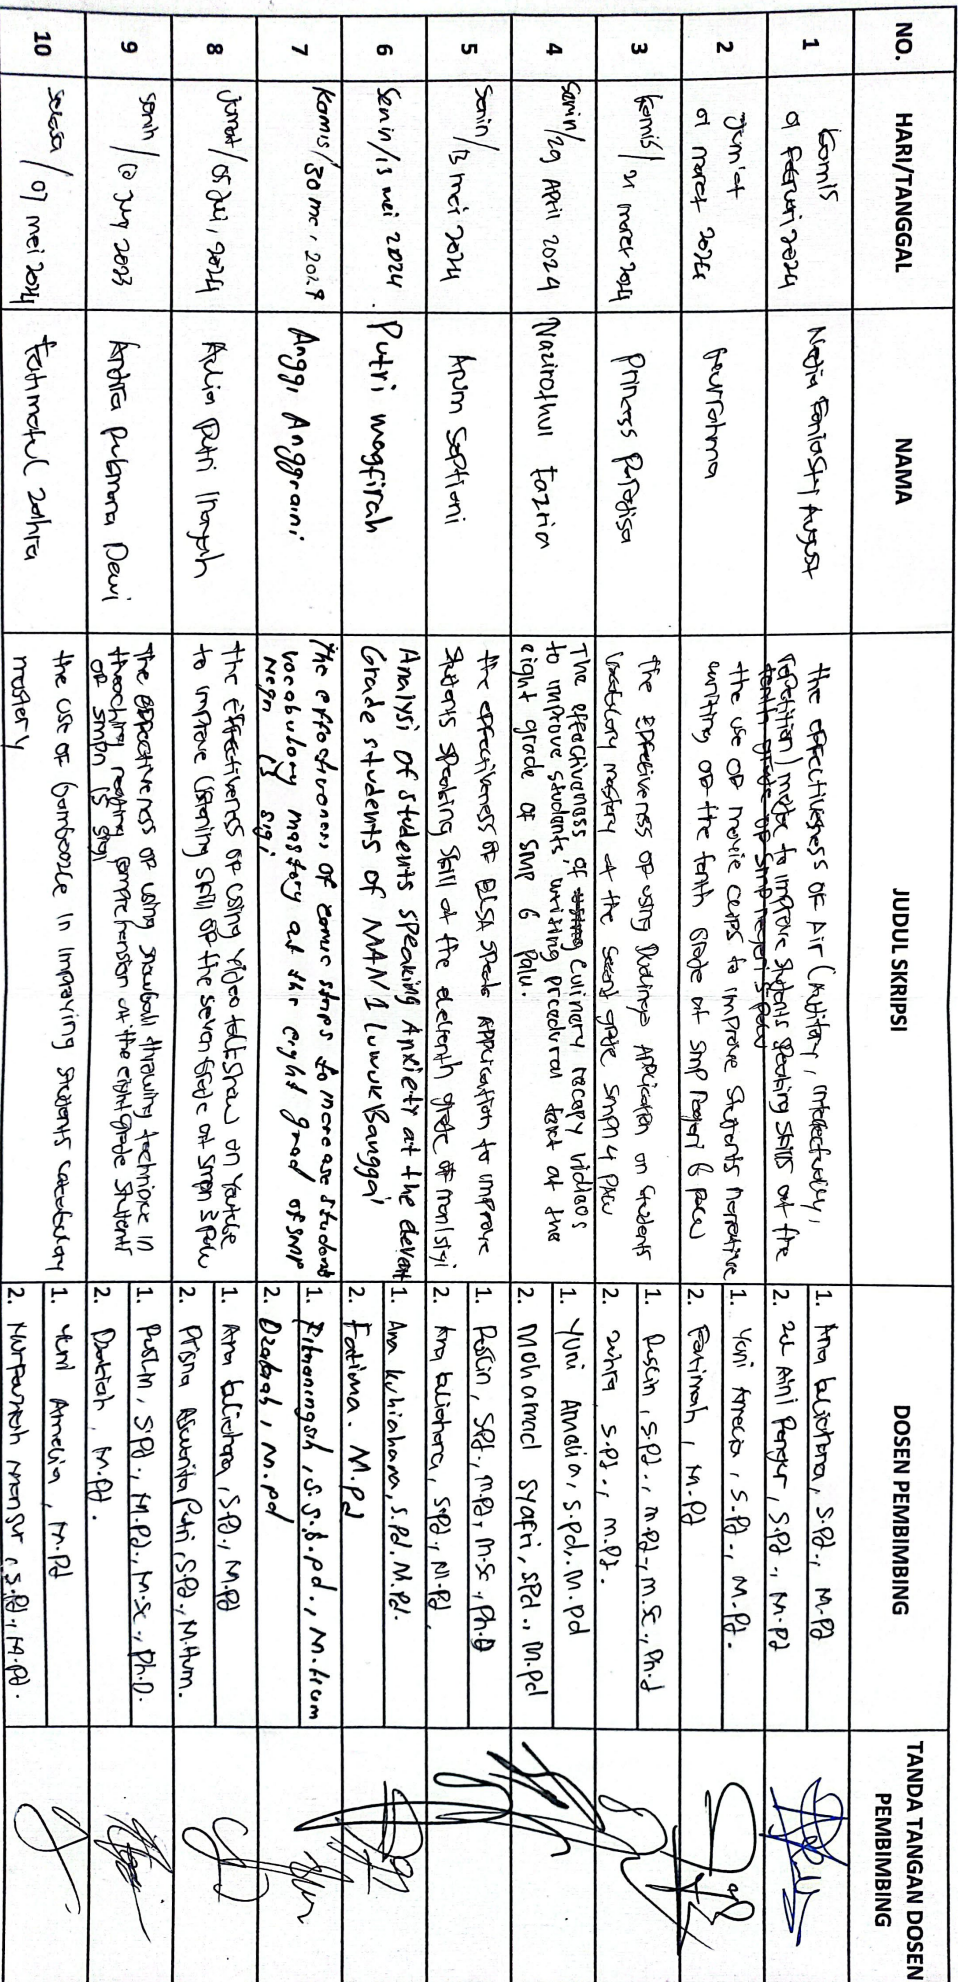 NO. HARI/TANGGAL NAMA JUDUL SKRIPSI DOSEN PEMBIMBING TANDA TANGAN DOSEN PEMBIMBING
1
Kamis
01 Februari 2024
Nadia August
The effectiveness of Air (Auditory, Intellectually,
repetition) to improve students speaking skills at the
tenth grade of smp negeri 5 palu
1. Ana kuliahana, S.Pd., M.Pd
2. S.Pd., M.Pd
2
Jum'at
01 maret 2024
Nurrahma
the use of movie clips to improve students narrative
writing of the tenth Grade at smp Negeri 6 palu
1. Yuni Amelia, S.Pd., M.Pd.
2. Fatimah, M.Pd
3
Kamis/ 21 maret 2024
Princess Paradisa
The Effectiveness of using Duolingo Application on students
vocabulary mastery at the second grade smpn 4 Palu
1. Ruslin, S.Pd., M.Pd., M.Sc., Ph.d
2. Zuhra, S.Pd., M.Pd.
4
Senin/29 April 2024
Nazirothul Fazria
The effectiveness of culinary recapy vidioos
to improve students' writing procedural text at the
eight grade of smp 6 Palu.
1. Yuni Amelia, S.pd., M.pd
2. Mohamad Syafri, SPd., M.pd
5
Senin/13 mei 2024
Arum Septiani
the effectiveness of ELSA Speak Application to improve
Students speaking skill at the eleventh grade of man 1 sigi
1. Ruslin, SPd., MPd., M.Sc., Ph.D
2. Ana kuliahana, S.Pd., M.Pd.
6
Senin/13 mei 2024.
Putri magfirah
Analysi of students speaking Anxiety at the eleven
Grade students of MAN 1 Luwuk Banggai
1. Ana kuliahana, S.Pd. M.Pd.
2. Fatima. M.Pd
7
Kamis/30 mei, 2024
Anggi Anggraini
The effectiveness of comic strips to increase student
vocabulary mastery at the eight grad of smp
Negri 13 sigi
1. S.S. S.pd., M.Hum
2. M.pd
8
Jumat/05 Juli, 2024
Aulia Putri Inayah
The effectiveness of using Video talkshow on Youtube
to improve listening skill of the seven Grade at smpn 3 palu
1. Ana kuliahana, S.Pd., M.Pd
2. Prisna Aswarita Putri, S.Pd., M.Hum.
9
Senin/10 2023
Andira Dewi
The effectiveness of using snowball throwing technique in
theaching reading comprehension at the eight grade students
of smpn 15 sigi
1. Ruslin, S.Pd., M.Pd., M.Sc., Ph.D.
2. M.Pd.
10
Selasa/07 mei 2024
Fatimatul Zahra
the use of Bamboozle in Improving students vocabulary
mastery
1. Yuni Amelia, M.Pd
2. Nurfaizah Mansur, S.Pd., M.Pd.